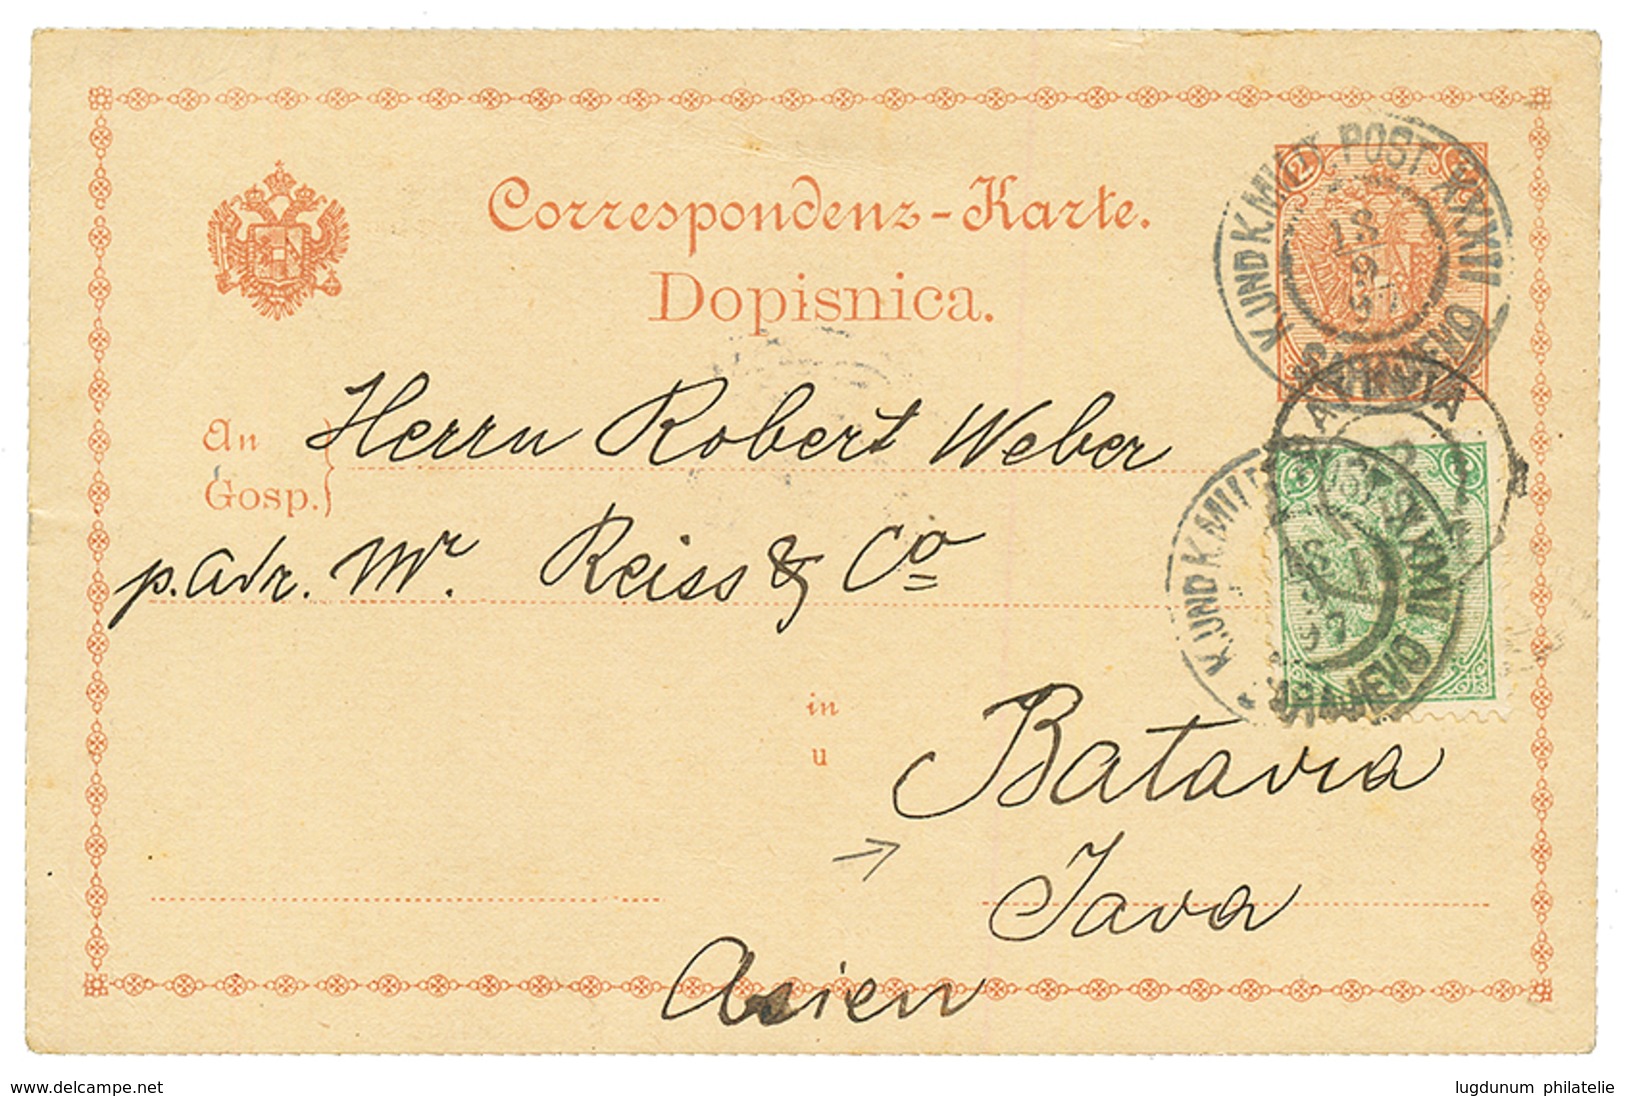 Correspondenz-Karte.
Dopisnica.
An
Gosp.
Herrn Robert Weber
p. adr. Mr. Reiss & Co
in
u
Batavia
Java
Asien
2
K. UND K. MILIT. POST XXXVII
SARAJEVO
K. UND K. MILIT. POST XXXVII
SARAJEVO
BATAVIA
www.delcampe.net
lugdunum philatelie